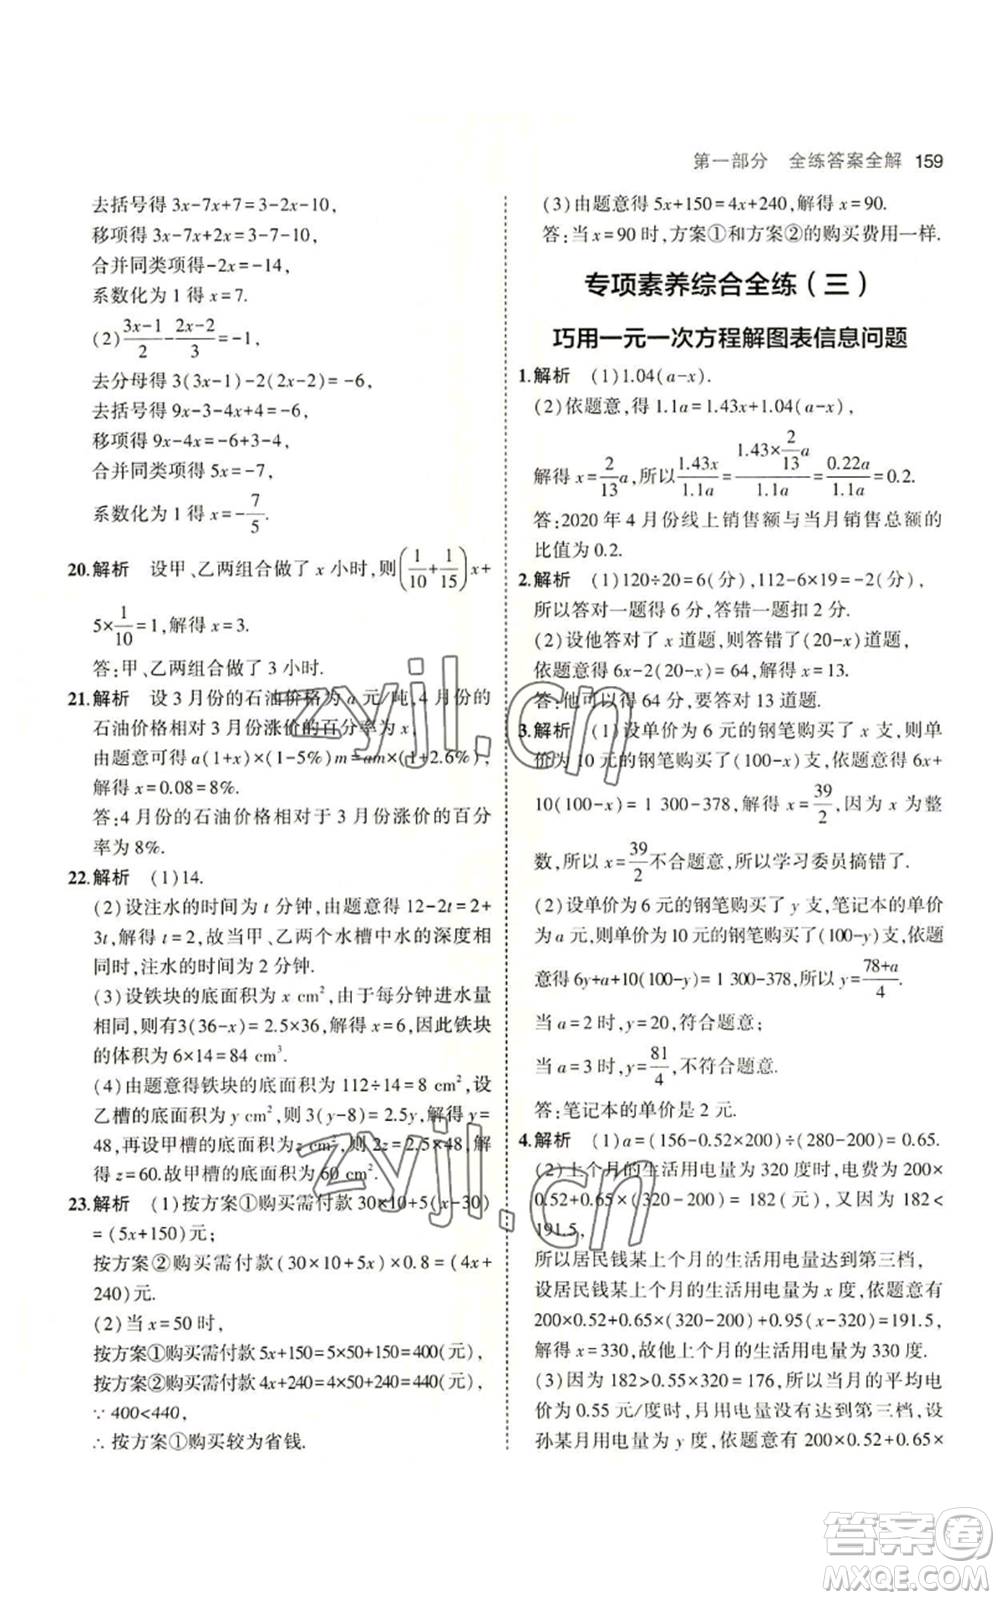 第一部分 全练答案全解 159
去括号得 3x-7x+7=3-2x-10,
移项得 3x-7x+2x=3-10-7,
合并同类项得-2x=-14,
系数化为 1 得 x=7.
(2)\frac{3x-1}{2}-\frac{2x-2}{3}=-1,
去分母得 3(3x-1)-2(2x-2)=-6,
去括号得 9x-3-4x+4=-6,
移项得 9x-4x=-6+3-4,
合并同类项得 5x=-7,
系数化为 1 得 x=-\frac{7}{5}.
20.解析 设甲、乙两组合做了 x 小时,则(\frac{1}{10}+\frac{1}{15})x+
5×\frac{1}{10}=1,解得 x=3.
答:甲、乙两组合做了 3 小时.
21.解析 设 3 月份的石油价格为 a 元/吨,4 月份的
石油价格相对 3 月份涨价的百分率为 x,
由题意可得 a(1+x)×(1-5%)m=am×(1+2.6%),
解得 x=0.08=8%.
答:4 月份的石油价格相对于 3 月份涨价的百分
率为 8%.
22.解析 (1)14.
(2)设注水的时间为 t 分钟,由题意得 12-2t=2+
3t,解得 t=2,故当甲、乙两个水槽中水的深度相
同时,注水的时间为 2 分钟.
(3)设铁块的底面积为 x cm²,由于每分钟进水量
相同,则有3(36-x)=2.5×36,解得 x=6,因此铁块
的体积为 6×14=84 cm³.
(4)由题意得铁块的底面积为 112÷14=8 cm²,设
乙槽的底面积为 y cm²,则 3(y-8)=2.5y,解得 y=
48,再设甲槽的底面积为 z cm²,则 2z=2.5×48,解
得 z=60.故甲槽的底面积为 60 cm².
23.解析 (1)按方案①购买需付款 30×10+5(x-30)
=(5x+150)元;
按方案②购买需付款(30×10+5x)×0.8=(4x+
240)元.
(2)当 x=50 时,
按方案①购买需付款 5x+150=5×50+150=400(元),
按方案②购买需付款 4x+240=4×50+240=440(元),
∵ 400<440,
∴ 按方案①购买较为省钱.
(3)由题意得 5x+150=4x+240,解得 x=90.
答:当 x=90 时,方案①和方案②的购买费用一样.
专项素养综合全练(三)
巧用一元一次方程解图表信息问题
1.解析 (1)1.04(a-x).
(2)依题意,得 1.1a=1.43x+1.04(a-x),
解得 x=\frac{2}{13}a,所以\frac{1.43x}{1.1a}=\frac{1.43×\frac{2}{13}a}{1.1a}=\frac{0.22a}{1.1a}=0.2.
答:2020 年 4 月份线上销售额与当月销售总额的
比值为 0.2.
2.解析 (1)120÷20=6(分),112-6×19=-2(分),
所以答对一题得 6 分,答错一题扣 2 分.
(2)设他答对了 x 道题,则答错了(20-x)道题,
依题意得 6x-2(20-x)=64,解得 x=13.
答:他可以得 64 分,要答对 13 道题.
3.解析 (1)设单价为 6 元的钢笔购买了 x 支,则
单价为 10 元的钢笔购买了(100-x)支,依题意得 6x+
10(100-x)=1 300-378,解得 x=\frac{39}{2},因为 x 为整
数,所以 x=\frac{39}{2}不合题意,所以学习委员搞错了.
(2)设单价为 6 元的钢笔购买了 y 支,笔记本的单价
为 a 元,则单价为 10 元的钢笔购买了(100-y)支,依题
意得 6y+a+10(100-y)=1 300-378,所以 y=\frac{78+a}{4}.
当 a=2 时,y=20,符合题意;
当 a=3 时,y=\frac{81}{4},不符合题意.
答:笔记本的单价是 2 元.
4.解析 (1)a=(156-0.52×200)÷(280-200)=0.65.
(2)上个月的生活用电量为 320 度时,电费为 200×
0.52+0.65×(320-200)=182(元),又因为 182<
191.5,
所以居民钱某上个月的生活用电量达到第三档,
设居民钱某上个月的生活用电量为 x 度,依题意有
200×0.52+0.65×(320-200)+0.95(x-320)=191.5,
解得 x=330,故他上个月的生活用电量为 330 度.
(3)因为 182>0.55×320=176,所以当月的平均电
价为 0.55 元/度时,月用电量没有达到第三档,设
孙某月用电量为 y 度,依题意有 200×0.52+0.65×
zyjl.cn
zyjl.cn
答案卷
MXQE.COM